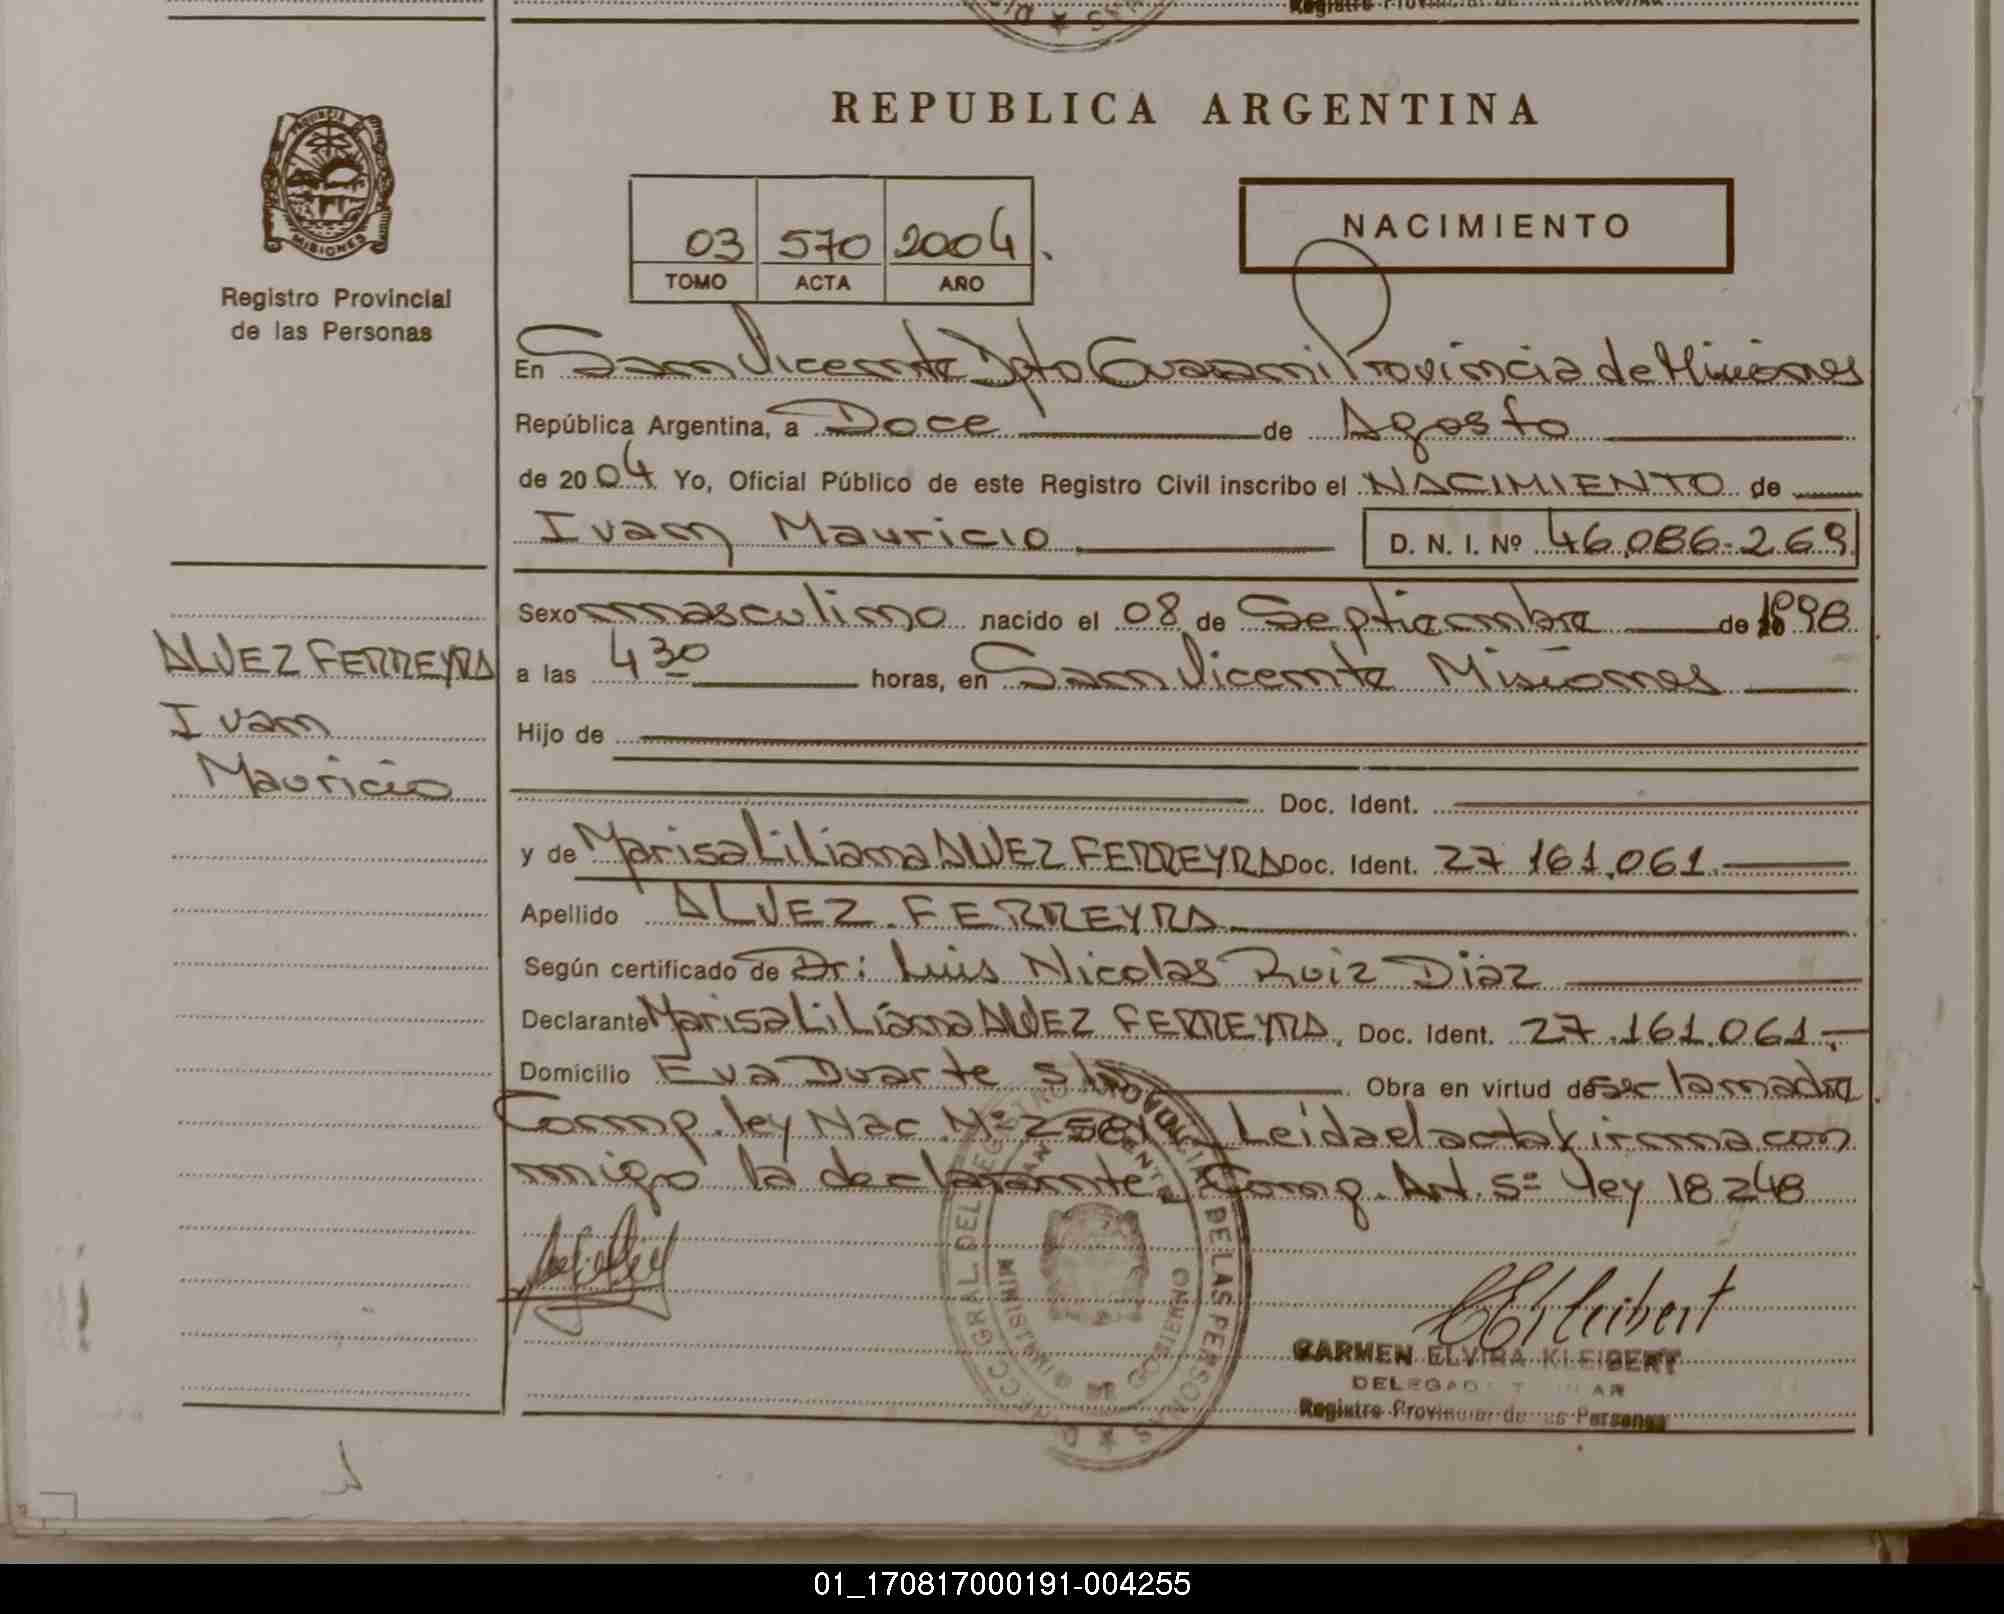 REPUBLICA ARGENTINA
PROVINCIA DE
MISIONES
Registro Provincial
de las Personas
03 570 2004.
TOMO ACTA AÑO
NACIMIENTO
En San Vicente Dpto Guarani Provincia de Misiones
República Argentina, a Doce de Agosto
de 2004 Yo, Oficial Público de este Registro Civil inscribo el NACIMIENTO de
Ivan Mauricio D. N. I. Nº 46.086.269
Sexo masculino nacido el 08 de Septiembre de 1998
ALVEZ FERREYRA
Ivan
Mauricio
a las 4 30 horas, en San Vicente Misiones
Hijo de
Doc. Ident.
y de Marisa Liliana ALVEZ FERREYRA Doc. Ident. 27.161.061.
Apellido ALVEZ FERREYRA
Según certificado de Dr: Luis Nicolas Ruiz Diaz
Declarante Marisa Liliana ALVEZ FERREYRA, Doc. Ident. 27.161.061.-
Domicilio Eva Duarte s/n Obra en virtud de ser la madre
Comp. ley Nac. Nº Leida el acta firma con
migo la declarante. Comp. Art. 5º ley 18248
MINISTERIO DE GOBIERNO
CEKleibert
CARMEN ELVIRA KLEIBERT
Registro Provincial de las Personas
01_170817000191-004255